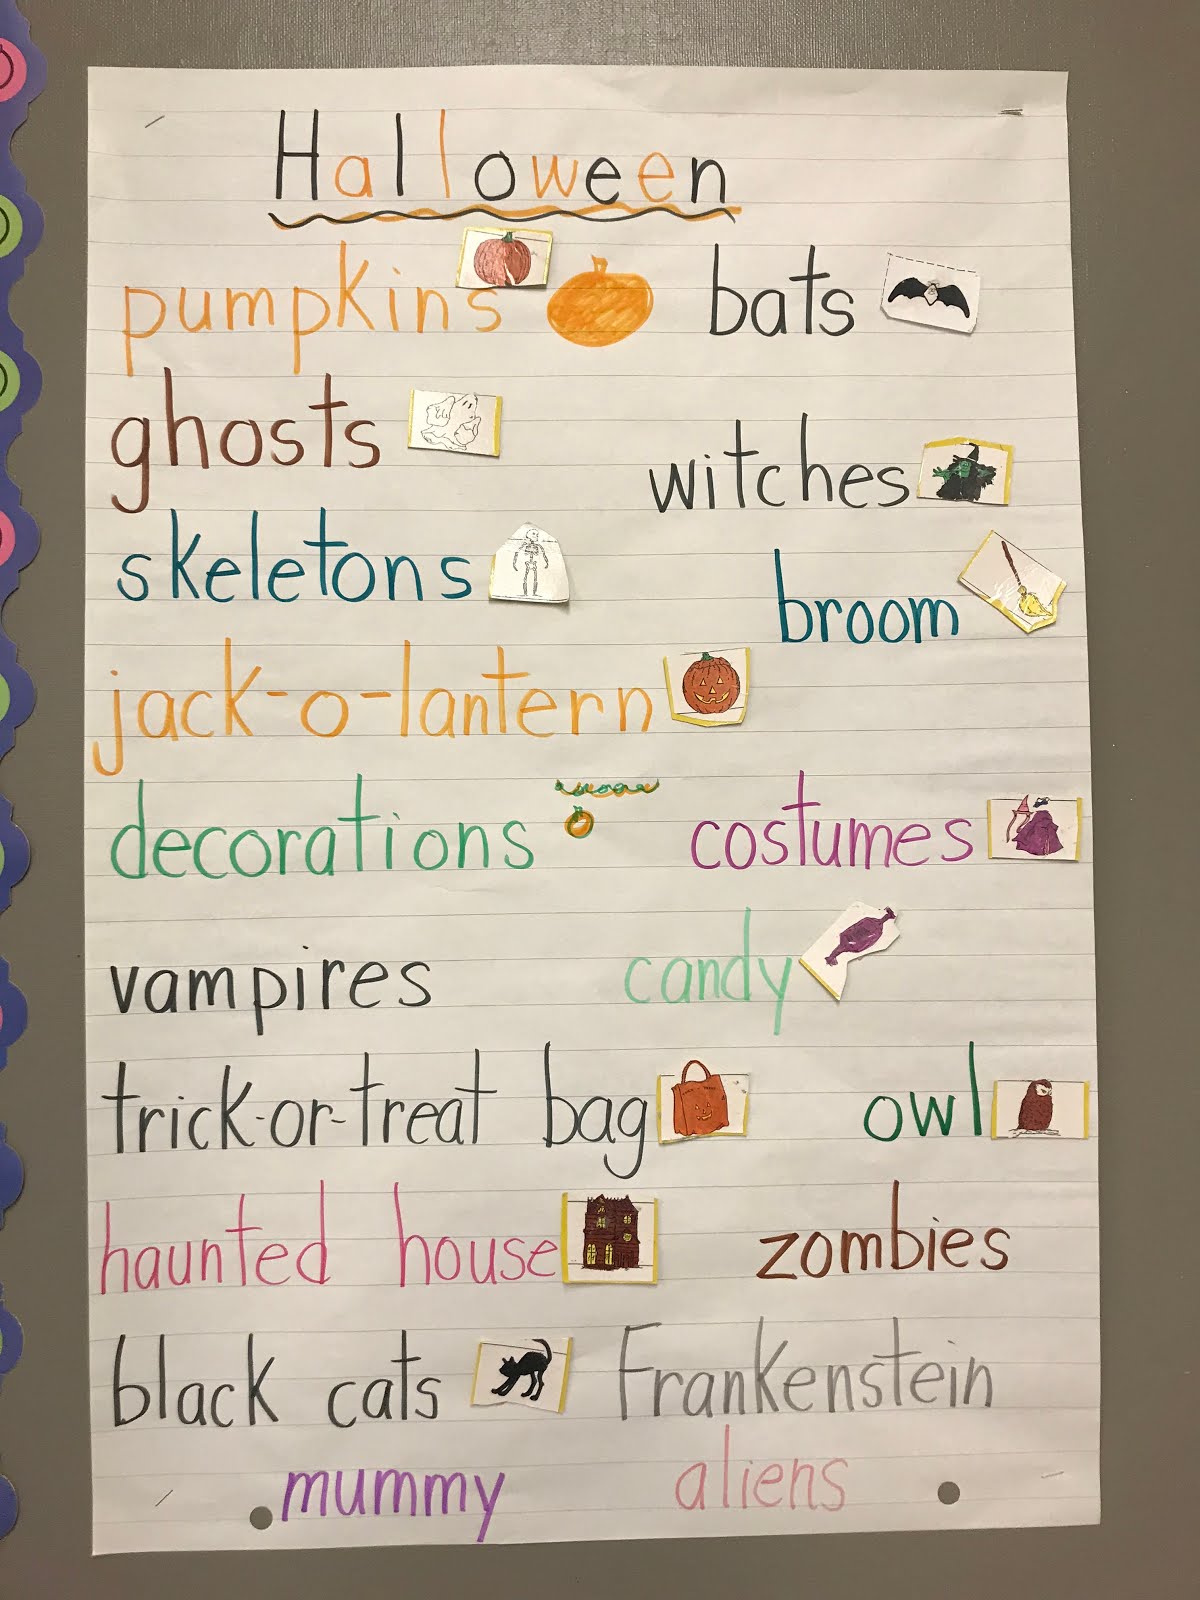 Halloween
pumpkins bats
ghosts
witches
skeletons
broom
jack-o-lantern
decorations costumes
vampires candy
trick-or-treat bag owl
haunted house zombies
black cats Frankenstein
mummy aliens